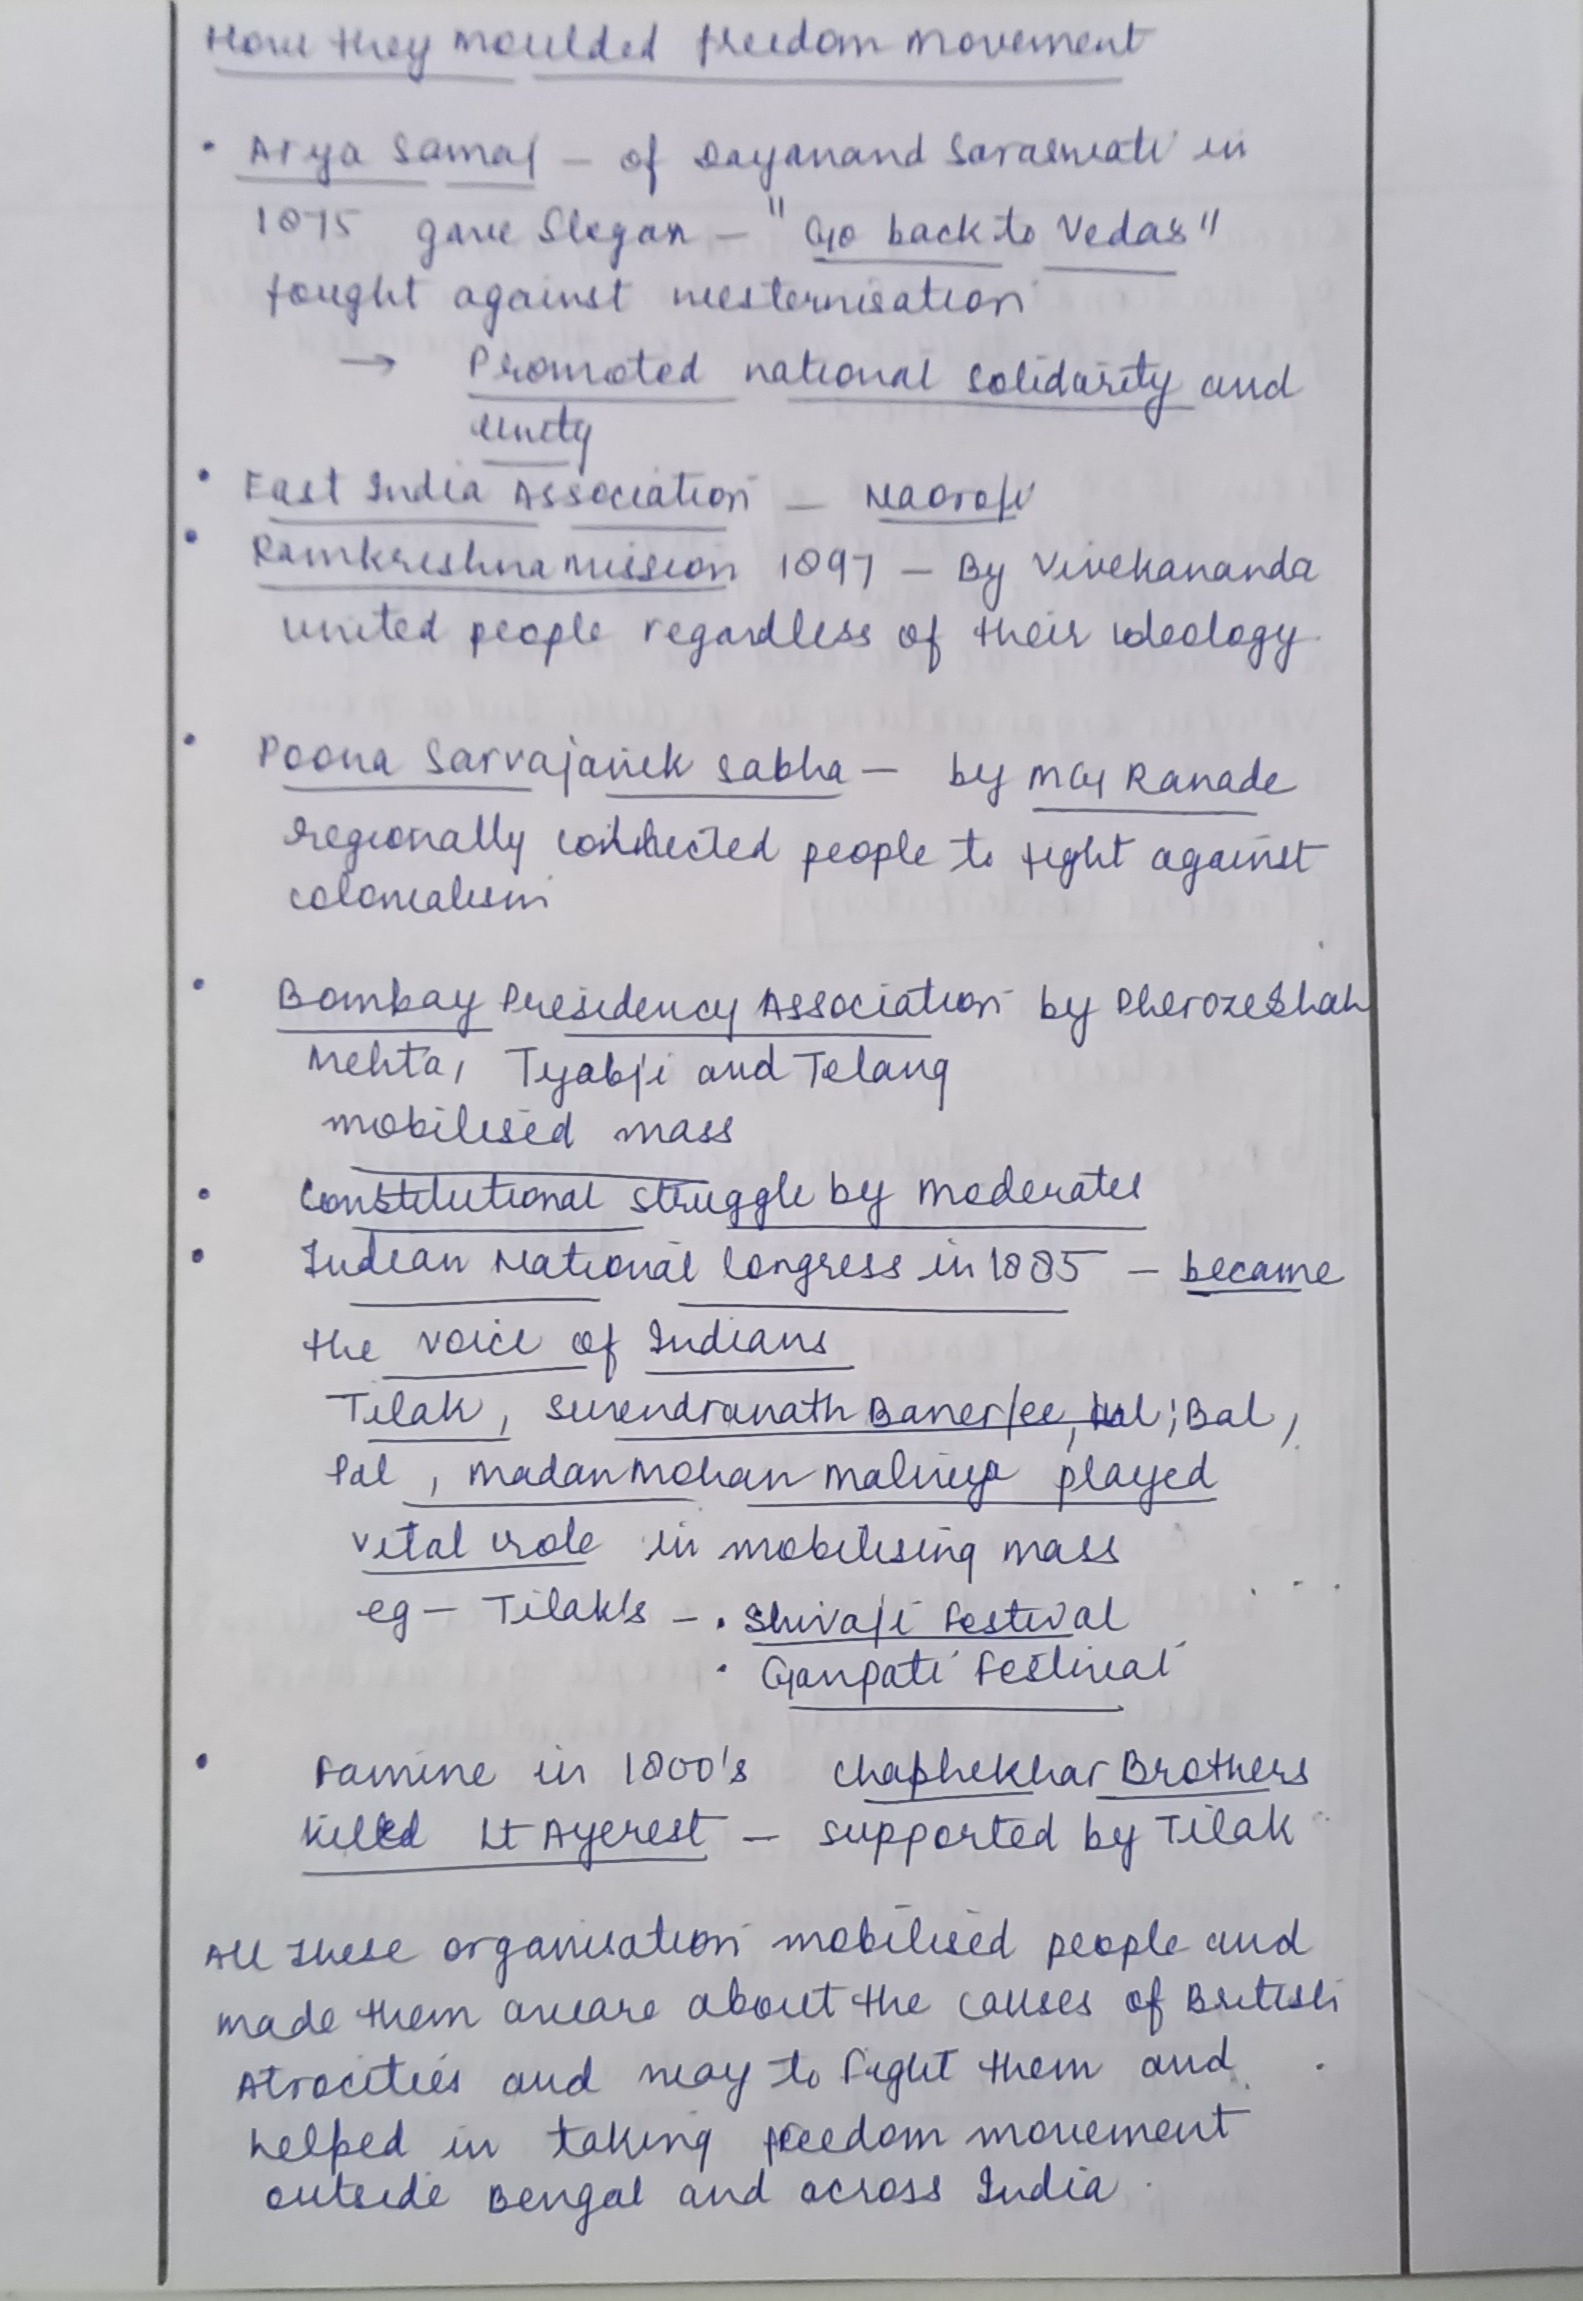 How they moulded freedom movement
• Arya Samaj – of Dayanand Saraswati in
1875 gave Slogan – "Go back to Vedas"
fought against westernisation
→ Promoted national solidarity and
unity
• East India Association – Naoroji
• Ramkrishna mission 1897 – By Vivekananda
united people regardless of their ideology
• Poona Sarvajanik sabha – by MG Ranade
regionally connected people to fight against
colonialism
• Bombay Presidency Association by Pherozeshah
Mehta, Tyabji and Telang
mobilised mass
• Constitutional struggle by moderates
• Indian National Congress in 1885 – became
the voice of Indians
Tilak, Surendranath Banerjee, Lal, Bal,
Pal, madan mohan malviya played
vital role in mobilising mass
eg – Tilak's – • Shivaji festival
• Ganpati festival
• Famine in 1800's Chaphekhar Brothers
killed Lt Ayerest – supported by Tilak
All these organisation mobilised people and
made them aware about the causes of British
Atrocities and way to fight them and
helped in taking freedom movement
outside Bengal and across India.